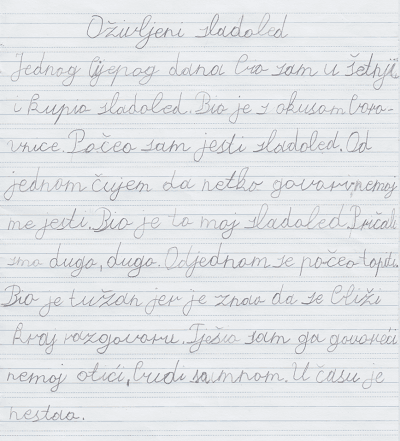 Oživljeni sladoled
Jednog lijepog dana bio sam u šetnji
i kupio sladoled. Bio je s okusom boro-
vnice. Počeo sam jesti sladoled. Od
jednom čujem da netko govori nemoj
me jesti. Bio je to moj sladoled. Pričali
smo dugo, dugo. Odjednom se počeo topiti.
Bio je tužan jer je znao da se bliži
kraj razgovoru. Tješio sam ga govoreći
nemoj otići, budi sa mnom. U času je
nestao.